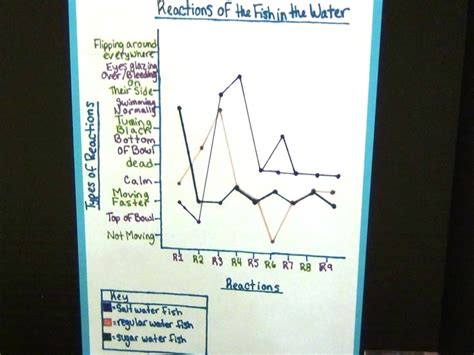 Reactions of the Fish in the Water
Types of Reactions
Flipping around
everywhere
Eyes glazing
Over/Bleeding
on
Their Side
Swimming
Normally
Turning
Black
Bottom
of Bowl
dead
Calm
Moving
Faster
Top of Bowl
Not Moving
R1 R2 R3 R4 R5 R6 R7 R8 R9
Reactions
Key
=Salt water fish
=regular water fish
=sugar water fish